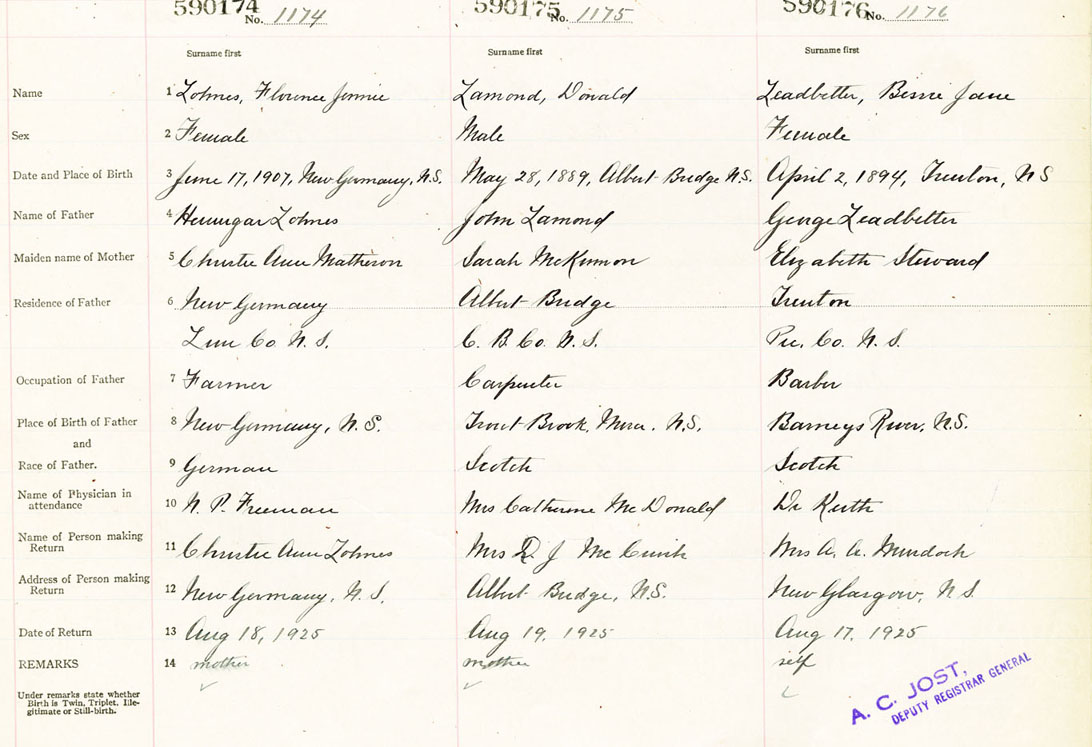 590174 No. 1174 590175 No. 1175 590176 No. 1176
Surname first Surname first Surname first
Name 1 Lohnes, Florence Jennie Lamond, Donald Leadbetter, Bessie Jane
Sex 2 Female Male Female
Date and Place of Birth 3 June 17, 1907, New Germany, N.S. May 28, 1889, Albert Bridge N.S. April 2, 1894, Trenton, N S
Name of Father 4 Hennigar Lohnes John Lamond George Leadbetter
Maiden name of Mother 5 Christie Ann Matheson Sarah McKinnon Elizabeth Steward
Residence of Father 6 New Germany Albert Bridge Trenton
Lun Co N. S. C. B. Co. N. S. Pic. Co. N. S.
Occupation of Father 7 Farmer Carpenter Barber
Place of Birth of Father 8 New Germany, N. S. Trout Brook, Mira. N.S. Barneys River, N.S.
and
Race of Father. 9 German Scotch Scotch
Name of Physician in
attendance 10 N. P. Freeman Mrs Catherine McDonald Dr Keith
Name of Person making
Return 11 Christie Ann Lohnes Mrs J Mrs A. A. Murdoch
Address of Person making
Return 12 New Germany, N. S. Albert Bridge, N.S. New Glasgow, N S
Date of Return 13 Aug 18, 1925 Aug 19. 1925 Aug 17. 1925
REMARKS 14 mother mother self
Under remarks state whether
Birth is Twin, Triplet, Ille-
gitimate or Still-birth.
A. C. JOST,
DEPUTY REGISTRAR GENERAL